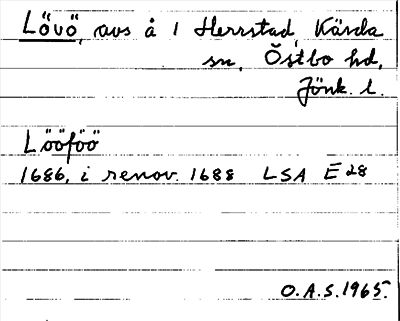 Lövö, avs å 1 Herrstad, Kärda
sn, Östbo hd,
Jönk. l.
Lööföö
1686, i renov. 1688 LSA E 28
O.A.S. 1965.